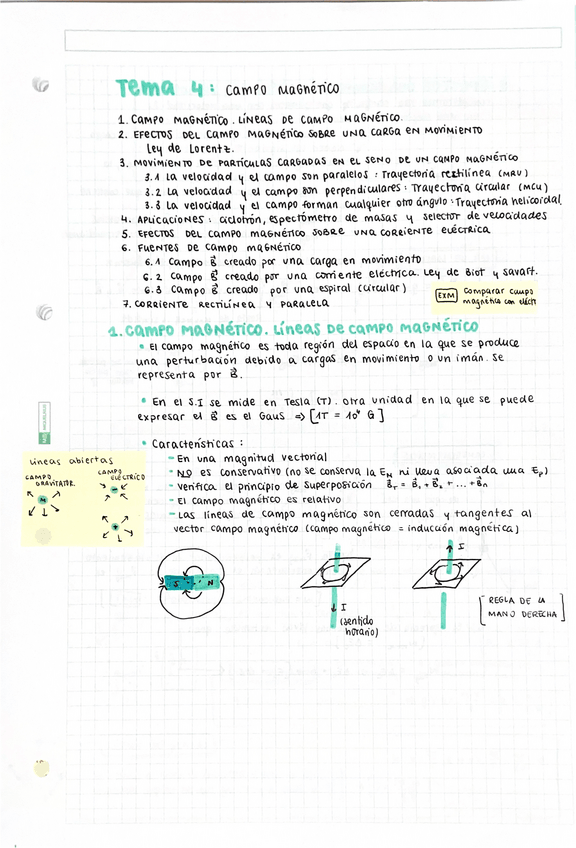 Tema 4: CAMPO MAGNÉTICO
1. CAMPO MAGNÉTICO. LÍNEAS DE CAMPO MAGNÉTICO.
2. EFECTOS DEL CAMPO MAGNÉTICO SOBRE UNA CARGA EN MOVIMIENTO
Ley de Lorentz.
3. MOVIMIENTO DE PARTÍCULAS CARGADAS EN EL SENO DE UN CAMPO MAGNÉTICO
3.1 La velocidad y el campo son paralelos : Trayectoria rectilínea (MRU)
3.2 La velocidad y el campo son perpendiculares : Trayectoria circular (MCU)
3.3 La velocidad y el campo forman cualquier otro ángulo : Trayectoria helicoidal
4. APLICACIONES : ciclotrón, espectómetro de masas y selector de velocidades
5. EFECTOS DEL CAMPO MAGNÉTICO SOBRE UNA CORRIENTE ELÉCTRICA
6. FUENTES DE CAMPO MAGNÉTICO
6.1 Campo B⃗ creado por una carga en movimiento
6.2 Campo B⃗ creado por una corriente eléctrica. Ley de Biot y Savart.
6.3 Campo B⃗ creado por una espiral (circular)
7. CORRIENTE RECTILÍNEA Y PARALELA
EXM Comparar campo
magnético con eléctr
1. CAMPO MAGNÉTICO. LÍNEAS DE CAMPO MAGNÉTICO
• El campo magnético es toda región del espacio en la que se produce
una perturbación debido a cargas en movimiento o un imán. Se
representa por B⃗.
• En el S.I se mide en Tesla (T). Otra unidad en la que se puede
expresar el B⃗ es el Gaus => [1T = 10⁴ G]
• Características :
- En una magnitud vectorial
- NO es conservativo (no se conserva la E_M ni lleva asociada una E_p)
- Verifica el principio de superposición B⃗_T = B⃗_1 + B⃗_2 + ... + B⃗_n
- El campo magnético es relativo
- Las líneas de campo magnético son cerradas y tangentes al
vector campo magnético (campo magnético = inducción magnética)
Líneas abiertas
CAMPO GRAVITATOR.
CAMPO ELÉCTRICO
M
-
+
S N
I
(sentido
horario)
I
[REGLA DE LA
MANO DERECHA]